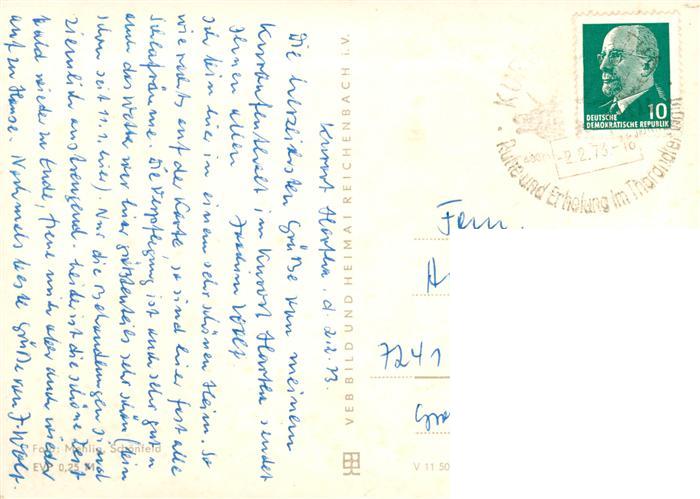 Kurort Hartha, d. 2.2.73.
Die herzlichsten Grüße von meinem
Kuraufenthalt in Kurort Hartha sendet
Ihnen allen Joachim Wolf.
Ich bin hier in einem sehr schönen Heim. So
wie rechts auf der Karte, so sind hier fast alle
Schlafräume. Die Verpflegung ist auch sehr gut u
auch das Wetter war hier größtenteils sehr schön (bin
schon seit 11.1. hier). Nur die Behandlungen sind
ziemlich anstrengend. Leider ist die schöne Zeit
bald wieder zu Ende, freue mich aber auch wieder
auf zu Hause. Nochmals beste Grüße von J. Wolf.
Foto: Mehlig, Schönfeld
EVP 0,25 M
VEB BILD UND HEIMAT REICHENBACH i. V.
V 11 50
DEUTSCHE
DEMOKRATISCHE REPUBLIK
10
-2.2.73-10
Ruhe und Erholung im Tharandter Wald
Fam.
7241